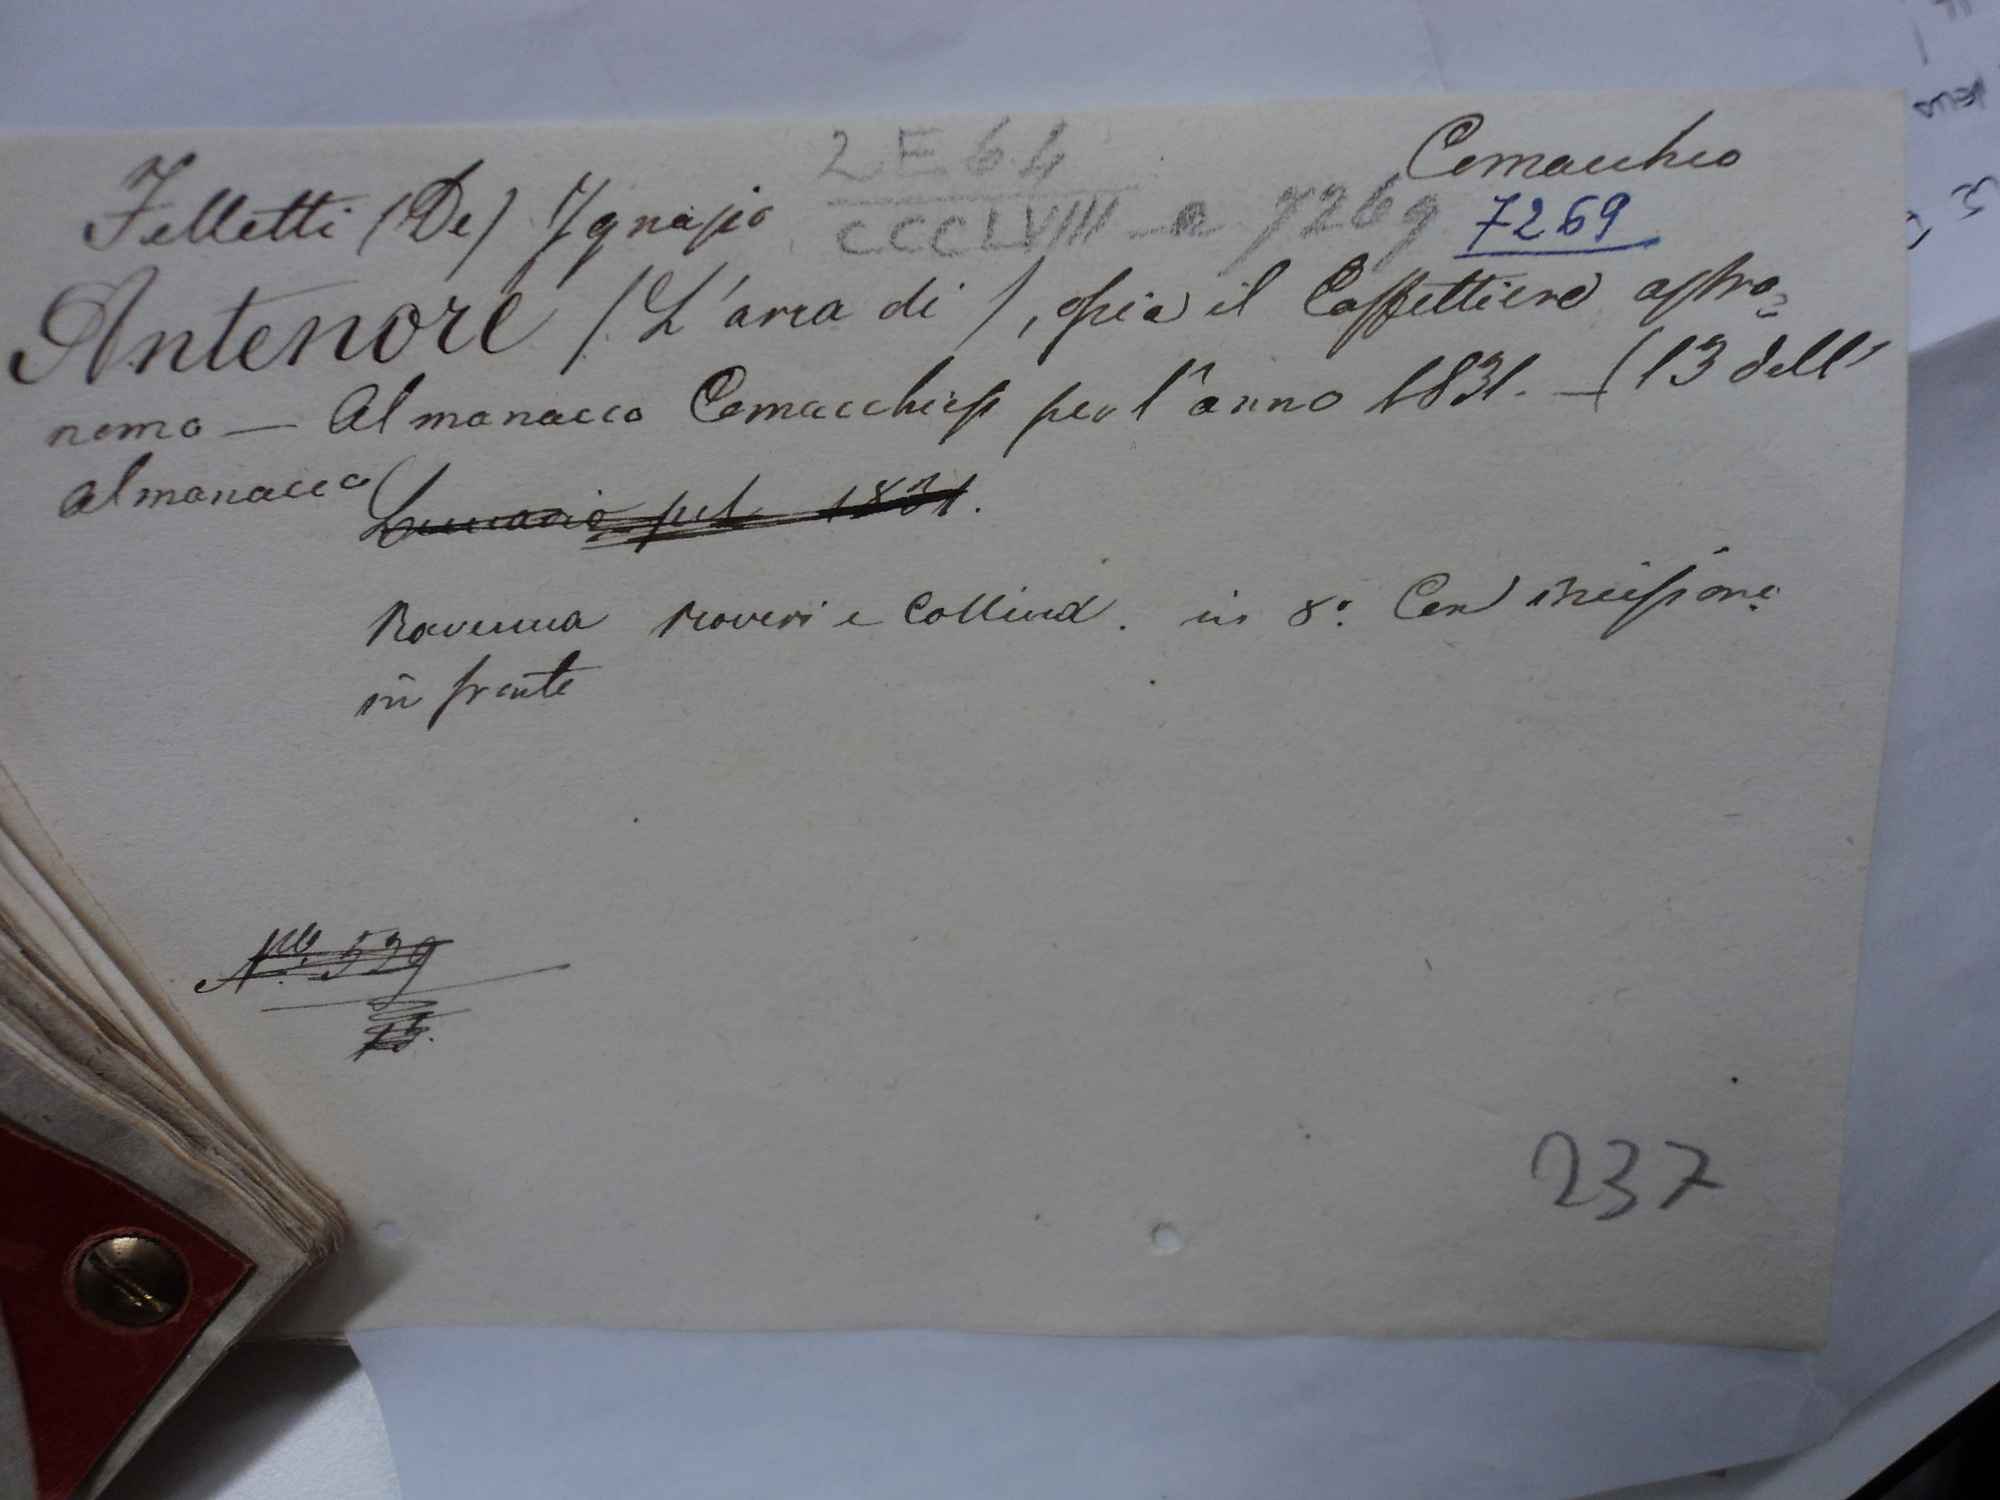 Comacchio
2 E 64
Felletti (De) Ygnazio
CCCLVIII - n 7269 7269
Antenore (L'arca di), ossia il Caffettiere astro=
nomo — Almanacco Comacchiese per l'anno 1831. — (13 dell'
almanacco
Lunario pel 1831.
Ravenna Roveri e Collina. in 8º. Con incisione
in fronte
539
237